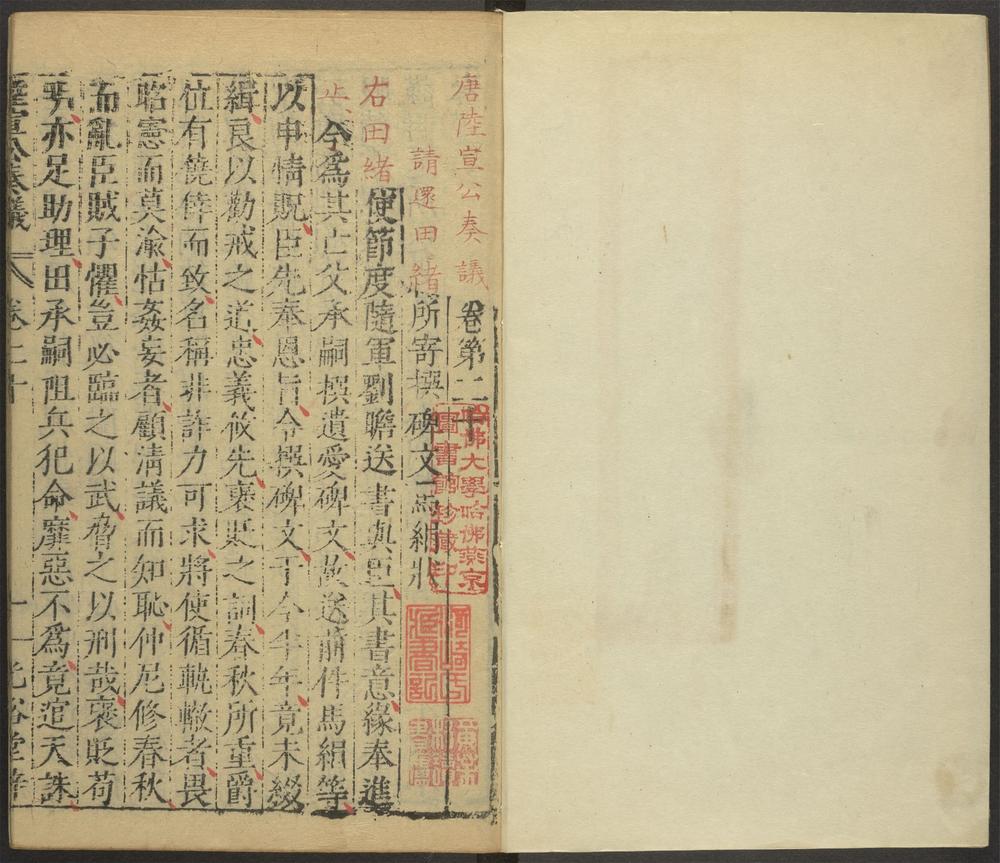 唐陸宣公奏議卷第二十
請還田緒所寄撰碑文馬絹狀
右田緒使節度隨軍劉瞻送書與臣其書意緣奉進
止令爲其亡父承嗣撰遺愛碑文故送前件馬絹等
以申情貺臣先奉恩旨令撰碑文于今半年竟未綴
緝良以勸戒之道忠義攸先褒貶之詞春秋所重爵
位有僥倖而致名稱非詐力可求將使循軌轍者畏
昭憲而莫渝怙姦妄者顧淸議而知恥仲尼修春秋
而亂臣賊子懼豈必臨之以武脅之以刑哉褒貶苟
明亦足助理田承嗣阻兵犯命靡惡不爲竟逭天誅
陸宣公奏議 卷二十 一
哈佛大學哈佛燕京
圖書館珍藏印
藏書記